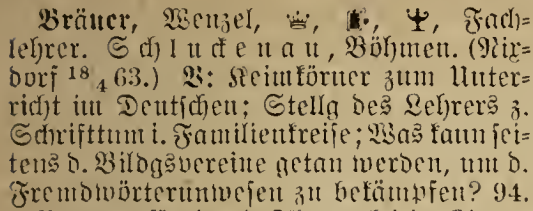 Bräuer, Wenzel, Fach=
lehrer. Schluckenau, Böhmen. (Nix=
dorf 18/4 63.) V: Keimkörner zum Unter=
richt im Deutschen; Stellg des Lehrers z.
Schrifttum i. Familienkreise; Was kann sei=
tens d. Bildgsvereine getan werden, um d.
Fremdwörterunwesen zu bekämpfen? 94.